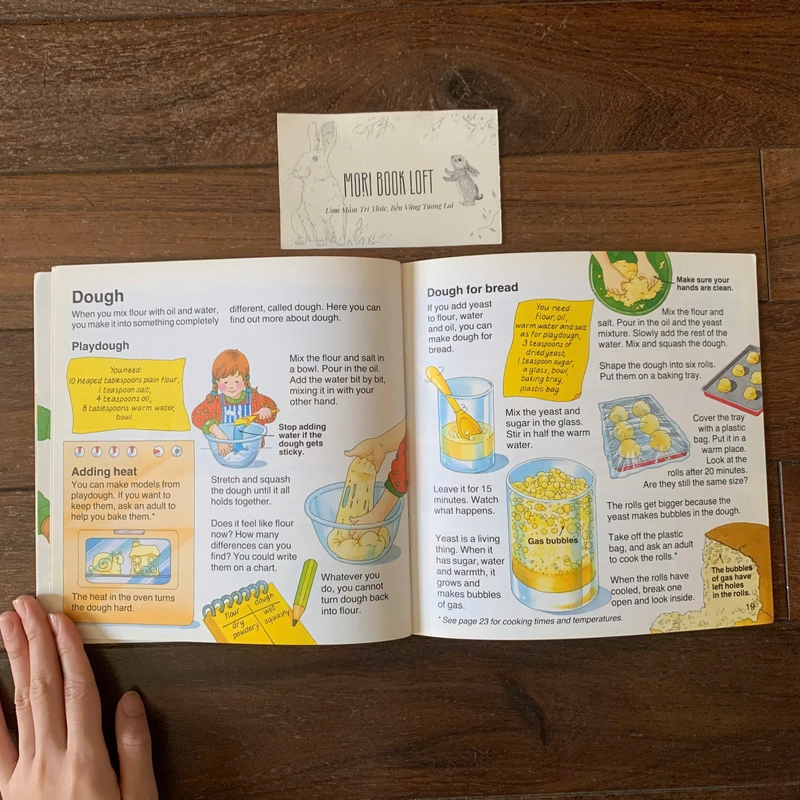 MORI BOOK LOFT
Ươm Mầm Tri Thức, Bền Vững Tương Lai
Dough
When you mix flour with oil and water,
you make it into something completely
different, called dough. Here you can
find out more about dough.
Playdough
You need:
10 heaped tablespoons plain flour,
1 teaspoon salt,
4 teaspoons oil,
8 tablespoons warm water,
bowl.
Mix the flour and salt in
a bowl. Pour in the oil.
Add the water bit by bit,
mixing it in with your
other hand.
Stop adding
water if the
dough gets
sticky.
Adding heat
You can make models from
playdough. If you want to
keep them, ask an adult to
help you bake them.*
The heat in the oven turns
the dough hard.
Stretch and squash
the dough until it all
holds together.
Does it feel like flour
now? How many
differences can you
find? You could write
them on a chart.
flour
dough
dry
powdery
wet
squashy
Whatever you
do, you cannot
turn dough back
into flour.
Dough for bread
If you add yeast
to flour, water
and oil, you can
make dough for
bread.
You need
flour, oil,
warm water and salt
as for playdough,
3 teaspoons of
dried yeast,
1 teaspoon sugar,
a glass, bowl,
baking tray,
plastic bag.
Make sure your
hands are clean.
Mix the flour and
salt. Pour in the oil and the yeast
mixture. Slowly add the rest of the
water. Mix and squash the dough.
Shape the dough into six rolls.
Put them on a baking tray.
Mix the yeast and
sugar in the glass.
Stir in half the warm
water.
Cover the tray
with a plastic
bag. Put it in a
warm place.
Look at the
rolls after 20 minutes.
Are they still the same size?
Leave it for 15
minutes. Watch
what happens.
Yeast is a living
thing. When it
has sugar, water
and warmth, it
grows and
makes bubbles
of gas.
Gas bubbles
The rolls get bigger because the
yeast makes bubbles in the dough.
Take off the plastic
bag, and ask an adult
to cook the rolls.*
When the rolls have
cooled, break one
open and look inside.
The bubbles
of gas have
left holes
in the rolls.
* See page 23 for cooking times and temperatures.
19